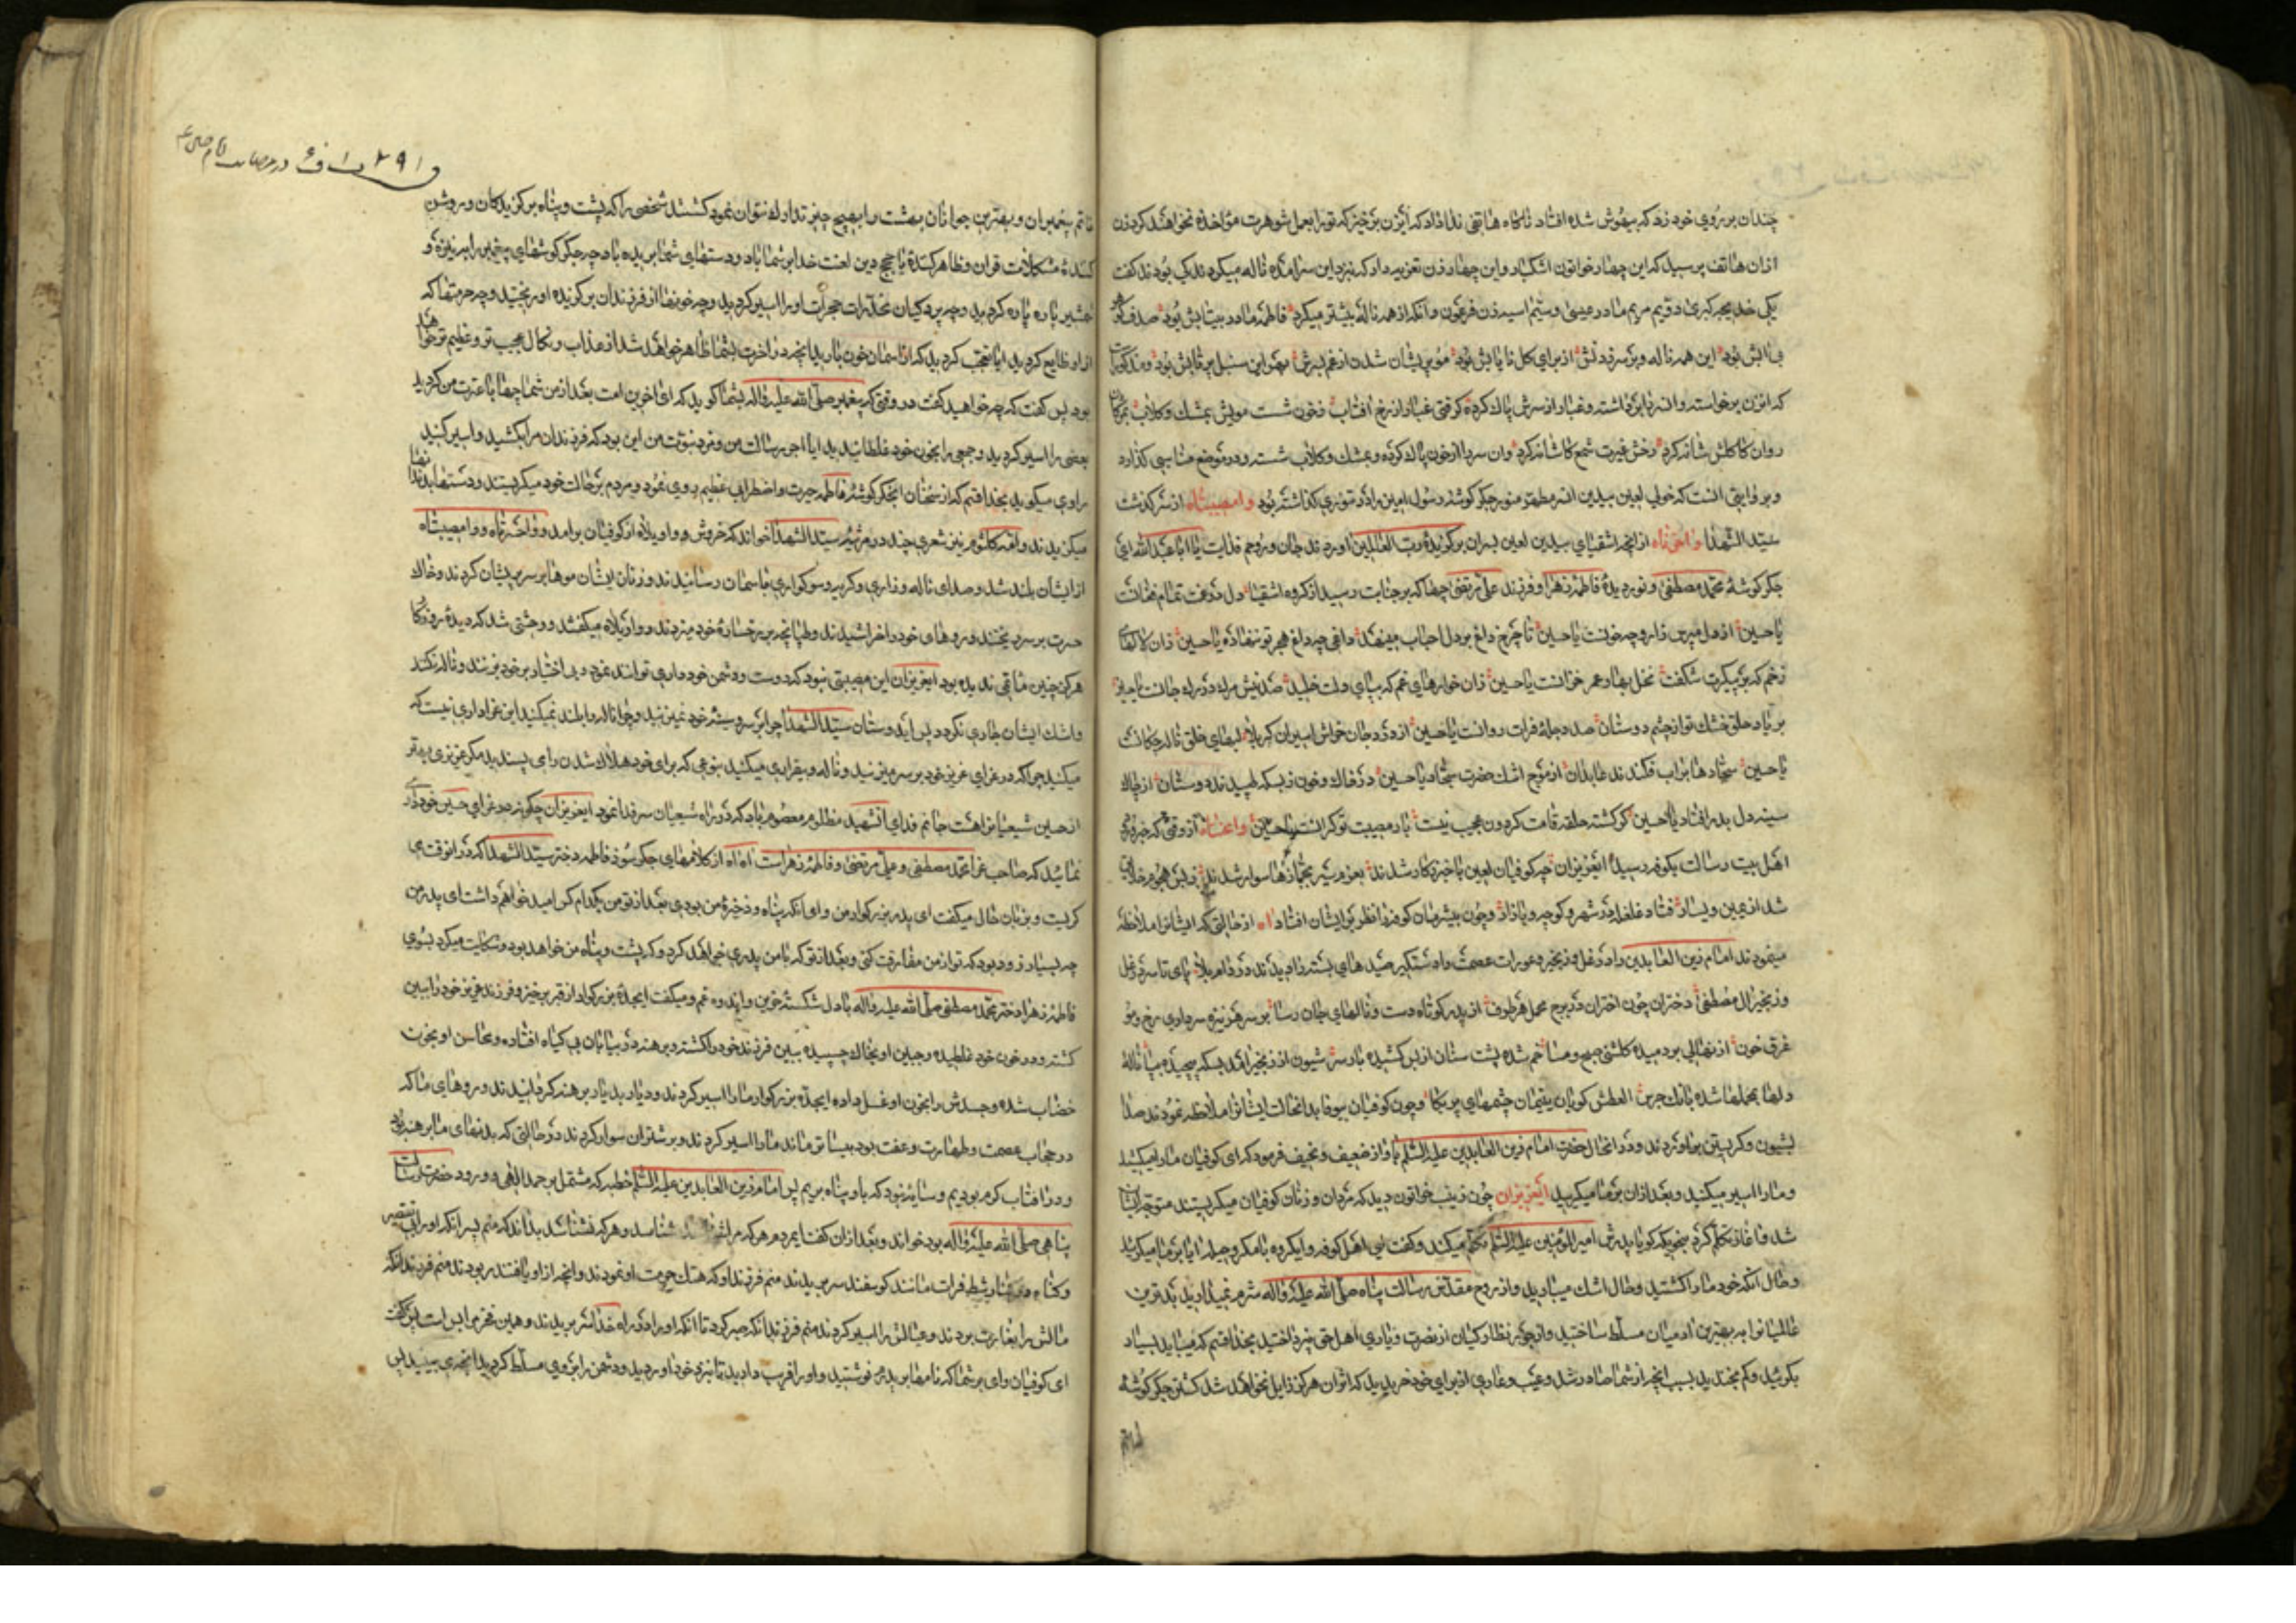 چندان بر روی خود زد که بیهوش شده افتاد ناکاه هاتفی ندا داد که ای زن برخیز که تو را بعمل شوهرت مؤاخذه نخواهند کرد زن
ازان هاتف پرسید که این چهار خواتون اشکبار و این چهار زن تعزیه دار که بنزد این سر آمده ناله میکردند کی بودند کفت
یکی خدیجه کبری دویم مریم مادر عیسی و سیّم اسیه زن فرعون و آنکه از همه ناله بیشتر میکرد فاطمه مادر بیتابش بود صدف
بی تابش بود این همه ناله و بر سر زدنش از برای کل نایابش بود مو پریشان شدن از غم پسرش بهر این سنبل پرتابش بود
که انزن برخواسته و انسر را برداشته و غبار از سرش پاک کرده کرفتی غبار از رخ افتاب ز خون شست مویش بمشک و کلاب
روان کاکلش شانه کرد رخش غیرت شمع کاشانه کرد و ان سر را از خون پاک کرده و بمشک و کلاب شسته و در موضع مناسبی کذارد
و بروایتی انست که خولی لعین بیدین انسر مطهر منور جکر کوشه رسول امین را در تنوری کذاشته بود وا مصیبتاه از سر کذشت
سیّد الشهدا وا حزناه از انچه اشقیای بیدین لعین بسران برکزیده رب العالمین اوردند جان و روحم فدایت یا ابا عبدالله ای
جکر کوشه محمد مصطفی و نور دیده فاطمه زهرا و فرزند علی مرتضی چها که بر جنابت رسید از کروه اشقیا دل در غمت تمام فغانست
یا حسین از دل مپرس زار و چه خونست یا حسین تا چرخ داغ بر دل احباب مینهد داغی چه داغ هجر تو ننهاده یا حسین زان لالهای
زخم که بر پیکرت شکفت نخل بهار عمر خزانست یا حسین زان خوارهای غم که بپای دلت خلید صد نیش مرک در رک جانست یا حسین
بر یاد حلق خشک تو از چشم دوستان صد دجله فرات روانست یا حسین از درد جان خراش اسیران کربلا لبهای خلق ناله چکانست
یا حسین سجاده ها بر اب فکندند عابدان از موج اشک حضرت سجاد یا حسین در خاک و خون ز بسکه طپیدند دوستان از چاک
سینه دل بدر افتاد یا حسین کر کشته حلقه قامت کردون عجیب نیست بار مصیبت تو کرانست یا حسین وا غماه از وقتی که خبر
اهل بیت رسالت بکوفه رسید ایعزیزان چه کوفیان لعین با خبر زکار شدند بعزم سیر بجمازها سوار شدند ز بس هجوم خلایق
شد از یمین و یسار فتاد غلغله در شهر و کوچه و بازار و چون بیشرمان کوفه را نظر بر ایشان افتاد اه از حالتی که ایشانرا ملاحظه
مینمودند امام زین العابدین را در غل و زنجیر و عورات عصمت را دستکیر صیدهای بسته را دیدند در دام بلا پای تا سر در غل
و زنجیر ال مصطفی دختران چون اختران در برج محمل هر طرف از پدر کوتاه دست و نالهای جان رسا بر سر هر نیزه سرداری برخ و مو
غرق خون از نهالی بردمیده کلشنی صبح و مسا خم شده پشت سنان از بس کشیده بار سر شیون از زنجیر امد بسکه پیچیده بپا ناله
دلها بمحملها شده بانک جرس العطش کویان یتیمان چشمهای پر بکا و چون کوفیان بیوفا بدانحالت ایشانرا ملاحظه نمودند صدا
بشیون و کریستن براوردند و در انحال حضرت امام زین العابدین علیه السلم باواز ضعیف و نحیف فرمود که ای کوفیان ما را میکشید
و ما را اسیر میکنید و بعد ازان بر ما میکریید ایعزیزان چون زینب خواتون دید که مردان و زنان کوفیان میکریستند متوجه ایشان
شد و اغاز تکلم کرد بنهجیکه کویا پدرش امیرالمؤمنین علیه السلم تکلم میکند و کفت ای اهل کوفه و ایکروه با مکر و حیله ایا بر ما میکریید
و حال آنکه خود ما را کشتید و حال اشک میبارید و از روح مقدّس رسالت پناه صلّی الله علیه و اله شرم نمیدارید بدترین
عالمیانرا بر بهترین ادمیان مسلّط ساختید و از جور نظارکیان از نصرت و یاری اهل حق نپرداختید بخدا قسم که میباید بسیار
بکریید و کم بخندید بسبب انچه از شما صادر شد و عیب و عاری از برای خود خریدید که اثر ان هرکز زایل نخواهد شد کشتن جکر کوشه
خاتم
و ۲۹۱ در مصایب امام حسین ع
خاتم پیغمبران و بهترین جوانان بهشت را بهیچ چیز تدارک نتوان نمود کشتند شخصی را که پشت و پناه برکزیدکان و روشن
کنندهٔ مشکلات قران و ظاهر کنندهٔ با حجج دین لعنت خدا بر شما باد و دستهای شما بریده باد چه جکر کوشهای پیغمبر را بر نیزه و
خنجر پاره پاره کردید و چه پردکیان مخدّرات حجرات او را اسیر کردید و چه خونها از فرزندان برکزیده او ریختید و چه حرمتها که
از او ضایع کردید ایا تعجب کردید که از اسمان خون بارید انچه در اخرت بشما ظاهر خواهد شد از عذاب و نکال عجیب تر و عظیم تر خواهد
بود پس کفت که چه خواهید کفت در وقتی که پیغمبر صلّی الله علیه و اله بشما کوید که ای اخرین امت بعد از من شما چها با عترت من کردید
بعضی را اسیر کردید و جمعی را بخون خود غلطانیدید ایا اجر رسالت من و مزد نبوّت من این بود که فرزندان مرا بکشید و اسیر کنید
راوی میکوید بخدا قسم که از سخنان انجکر کوشهٔ فاطمه حیرت و اضطراب عظیم روی نمود و مردم بر حالت خود میکریستند و دستها بدندان
میکزیدند و امّ کلثوم نیز شعری چند در مرثیهٔ سیّد الشهدا خواند که خروش و واویلاه از کوفیان برامد و واحسرتاه و وامصیبتاه
از ایشان بلند شد و صدای ناله و زاری و کریه و سوکواری باسمان رسانیدند و زنان ایشان موها بر سر پریشان کردند و خاک
حسرت بر سر ریختند و روهای خود را خراشیدند و طپانچه بر رخسارهٔ خود میزدند و واویلاه میکفتند و وحشتی شد که دیدهٔ روزکار
هرکز چنین ماتمی ندیده بود ایعزیزان این مصیبتی نبود که دوست و دشمن خود داری توانند نمود و بی اختیار بر خود نزنند و ناله نکنند
و اشک ایشان جاری نکردد پس ایدوستان سیّد الشهدا چرا بر سر و سینه خود نمیزنید و چرا ناله را بلند نمیکنید این عزاداری نیست که
میکنید چرا که در عزای عزیز خود بر سر میزنید و ناله و بیقراری میکنید بنوعی که برای خود هلاک شدن را می پسندید مکر عزیزی بهتر
از حسین شیعیانرا هست جانم فدای انشهید مظلوم معصوم باد که در راه شیعیان سر فدا نمود ایعزیزان چکونه در عزای حسین خود
نمائید که صاحب عزا محمد مصطفی و علی مرتضی و فاطمه زهراست اه اه از کلامهای جکر سوز فاطمه دختر سیّد الشهدا که در انوقت می
کریست و بزبان حال میکفت ای پدر بزرکوار من و ای انکه پناه و ذخیرهٔ من بودی بعد از تو من بکدام کس امید خواهم داشت ای پدر من
چه بسیار زود بود که تو از من مفارقت کنی و بعد از تو که با من پدری خواهد کرد و که پشت و پناه من خواهد بود و شکایت میکرد بسوی
فاطمه زهرا دختر محمد مصطفی صلّی الله علیه و اله با دل شکستهٔ حزین و اندوه و غم و میکفت ایجدهٔ بزرکوار از قبر برخیز و فرزند عزیز خود را ببین
کشته و در خون خود غلطیده و جبین او بخاک چسپیده ببین فرزند خود را کشته و برهنه در بیابان بی کیاه افتاده و محاسن او بخون
خضاب شده و جسدش را بخون او غسل داده ایجدّه بزرکوار ما را اسیر کردند و دیار بدیار برهنه کردانیدند و روهای ما که
در حجاب عصمت و طهارت و عفت بود بیساتر ماند ما را اسیر کردند و بر شتران سوار کردند در حالتی که بدنهای ما برهنه بود
و در افتاب کرم بودیم و سایهٔ نبود که باو پناه بریم پس امام زین العابدین علیه السلم خطبه که مشتمل بر حمد الهی و درود حضرت رسالت
پناهی صلّی الله علیه و اله بود خواند و بعد ازان کفت ایمردم هر که مرا شناسد شناسد و هر که نشناسد بداند که منم پسر انکه او را بی تقصیر
و کناه در کنار شط فرات مانند کوسفند سر بریدند منم فرزند او که هتک حرمت او نمودند و انچه از او یافتند ربودند منم فرزند انکه
مالش را بغارت بردند و عیالش را اسیر کردند منم فرزند انکه صبر کرد تا انکه او را در راه خدا سر بریدند و همین فخر مرا بس است پس کفت
ای کوفیان وای بر شما که نامها بپدرم نوشتید و او را فریب دادید تا بنزد خود اوردید و دشمن را بر وی مسلّط کردید